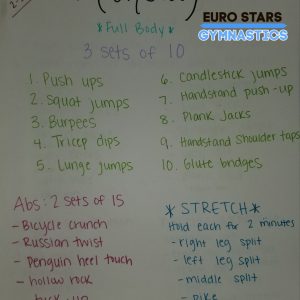 EURO STARS
GYMNASTICS
*Full Body*
3 sets of 10
1. Push ups
2. Squat jumps
3. Burpees
4. Tricep dips
5. Lunge jumps
6. Candlestick jumps
7. Handstand push-up
8. Plank Jacks
9. Handstand Shoulder taps
10. Glute bridges
Abs: 2 sets of 15
- Bicycle crunch
- Russian twist
- Penguin heel touch
- hollow rock
*STRETCH*
Hold each for 2 minutes
- right leg split
- left leg split
- middle split
- pike